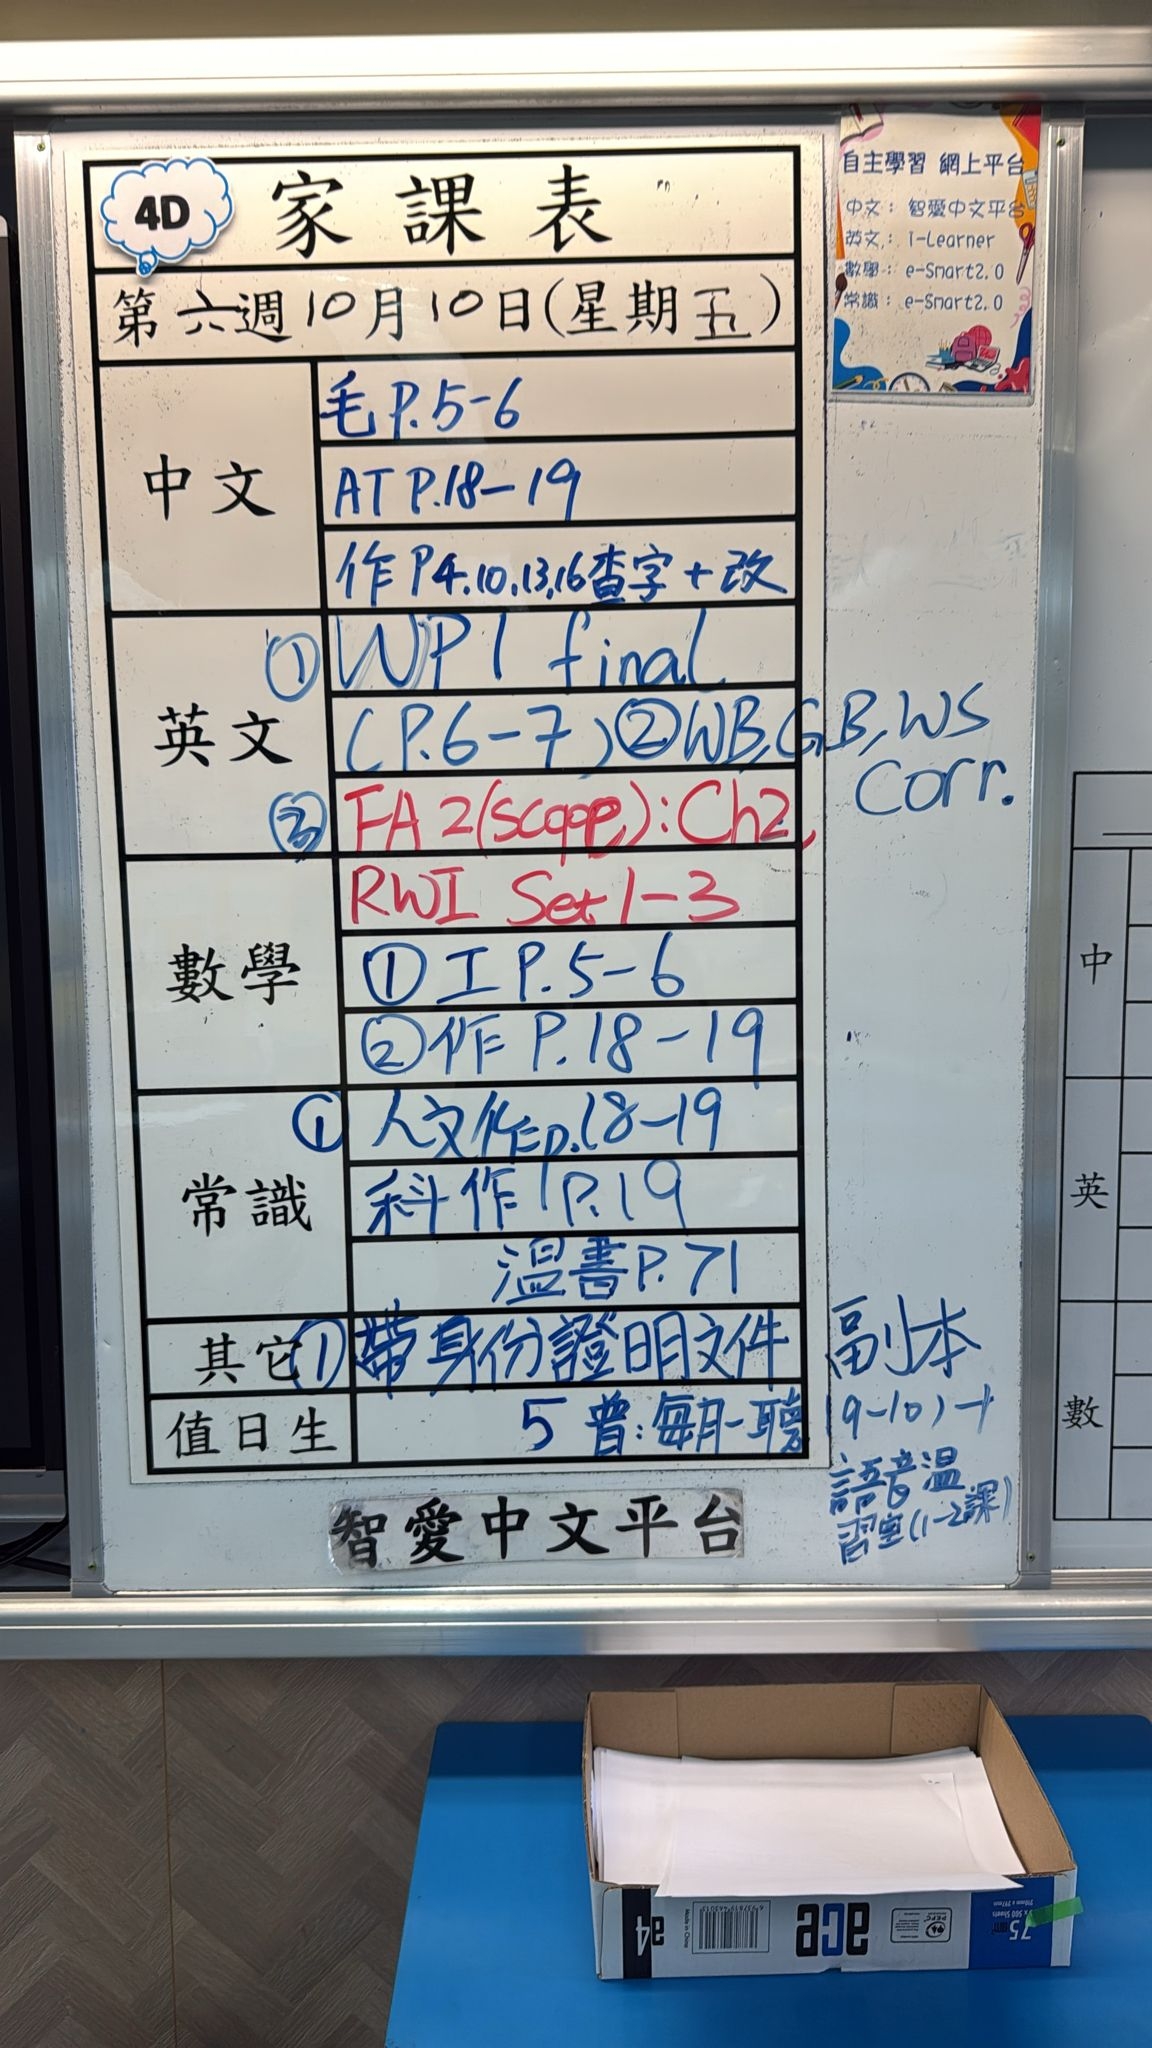 4D
家課表
第六週10月10日(星期五)
中文
毛P.5-6
AT P.18-19
作P4.10,13,16查字+改
英文
① WP1 final
(P.6-7) ②WB,GB,WS
Corr.
③ FA2(scope):Ch2,
RWI Set1-3
數學
①工P.5-6
②作P.18-19
常識
① 人文作p.18-19
科作P.19
溫書P.71
其它
①帶身份證明文件副本
值日生
5 普:每月一聽(9-10)+
語音溫
習室(1-2課)
智愛中文平台
自主學習 網上平台
中文: 智愛中文平台
英文: i-Learner
數學: e-Smart2.0
常識: e-Smart2.0
中
英
數
a4
Made in China
ace
75